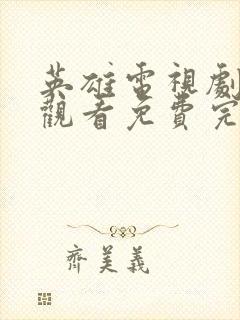 英雄電視劇
觀看免費完
齊美義